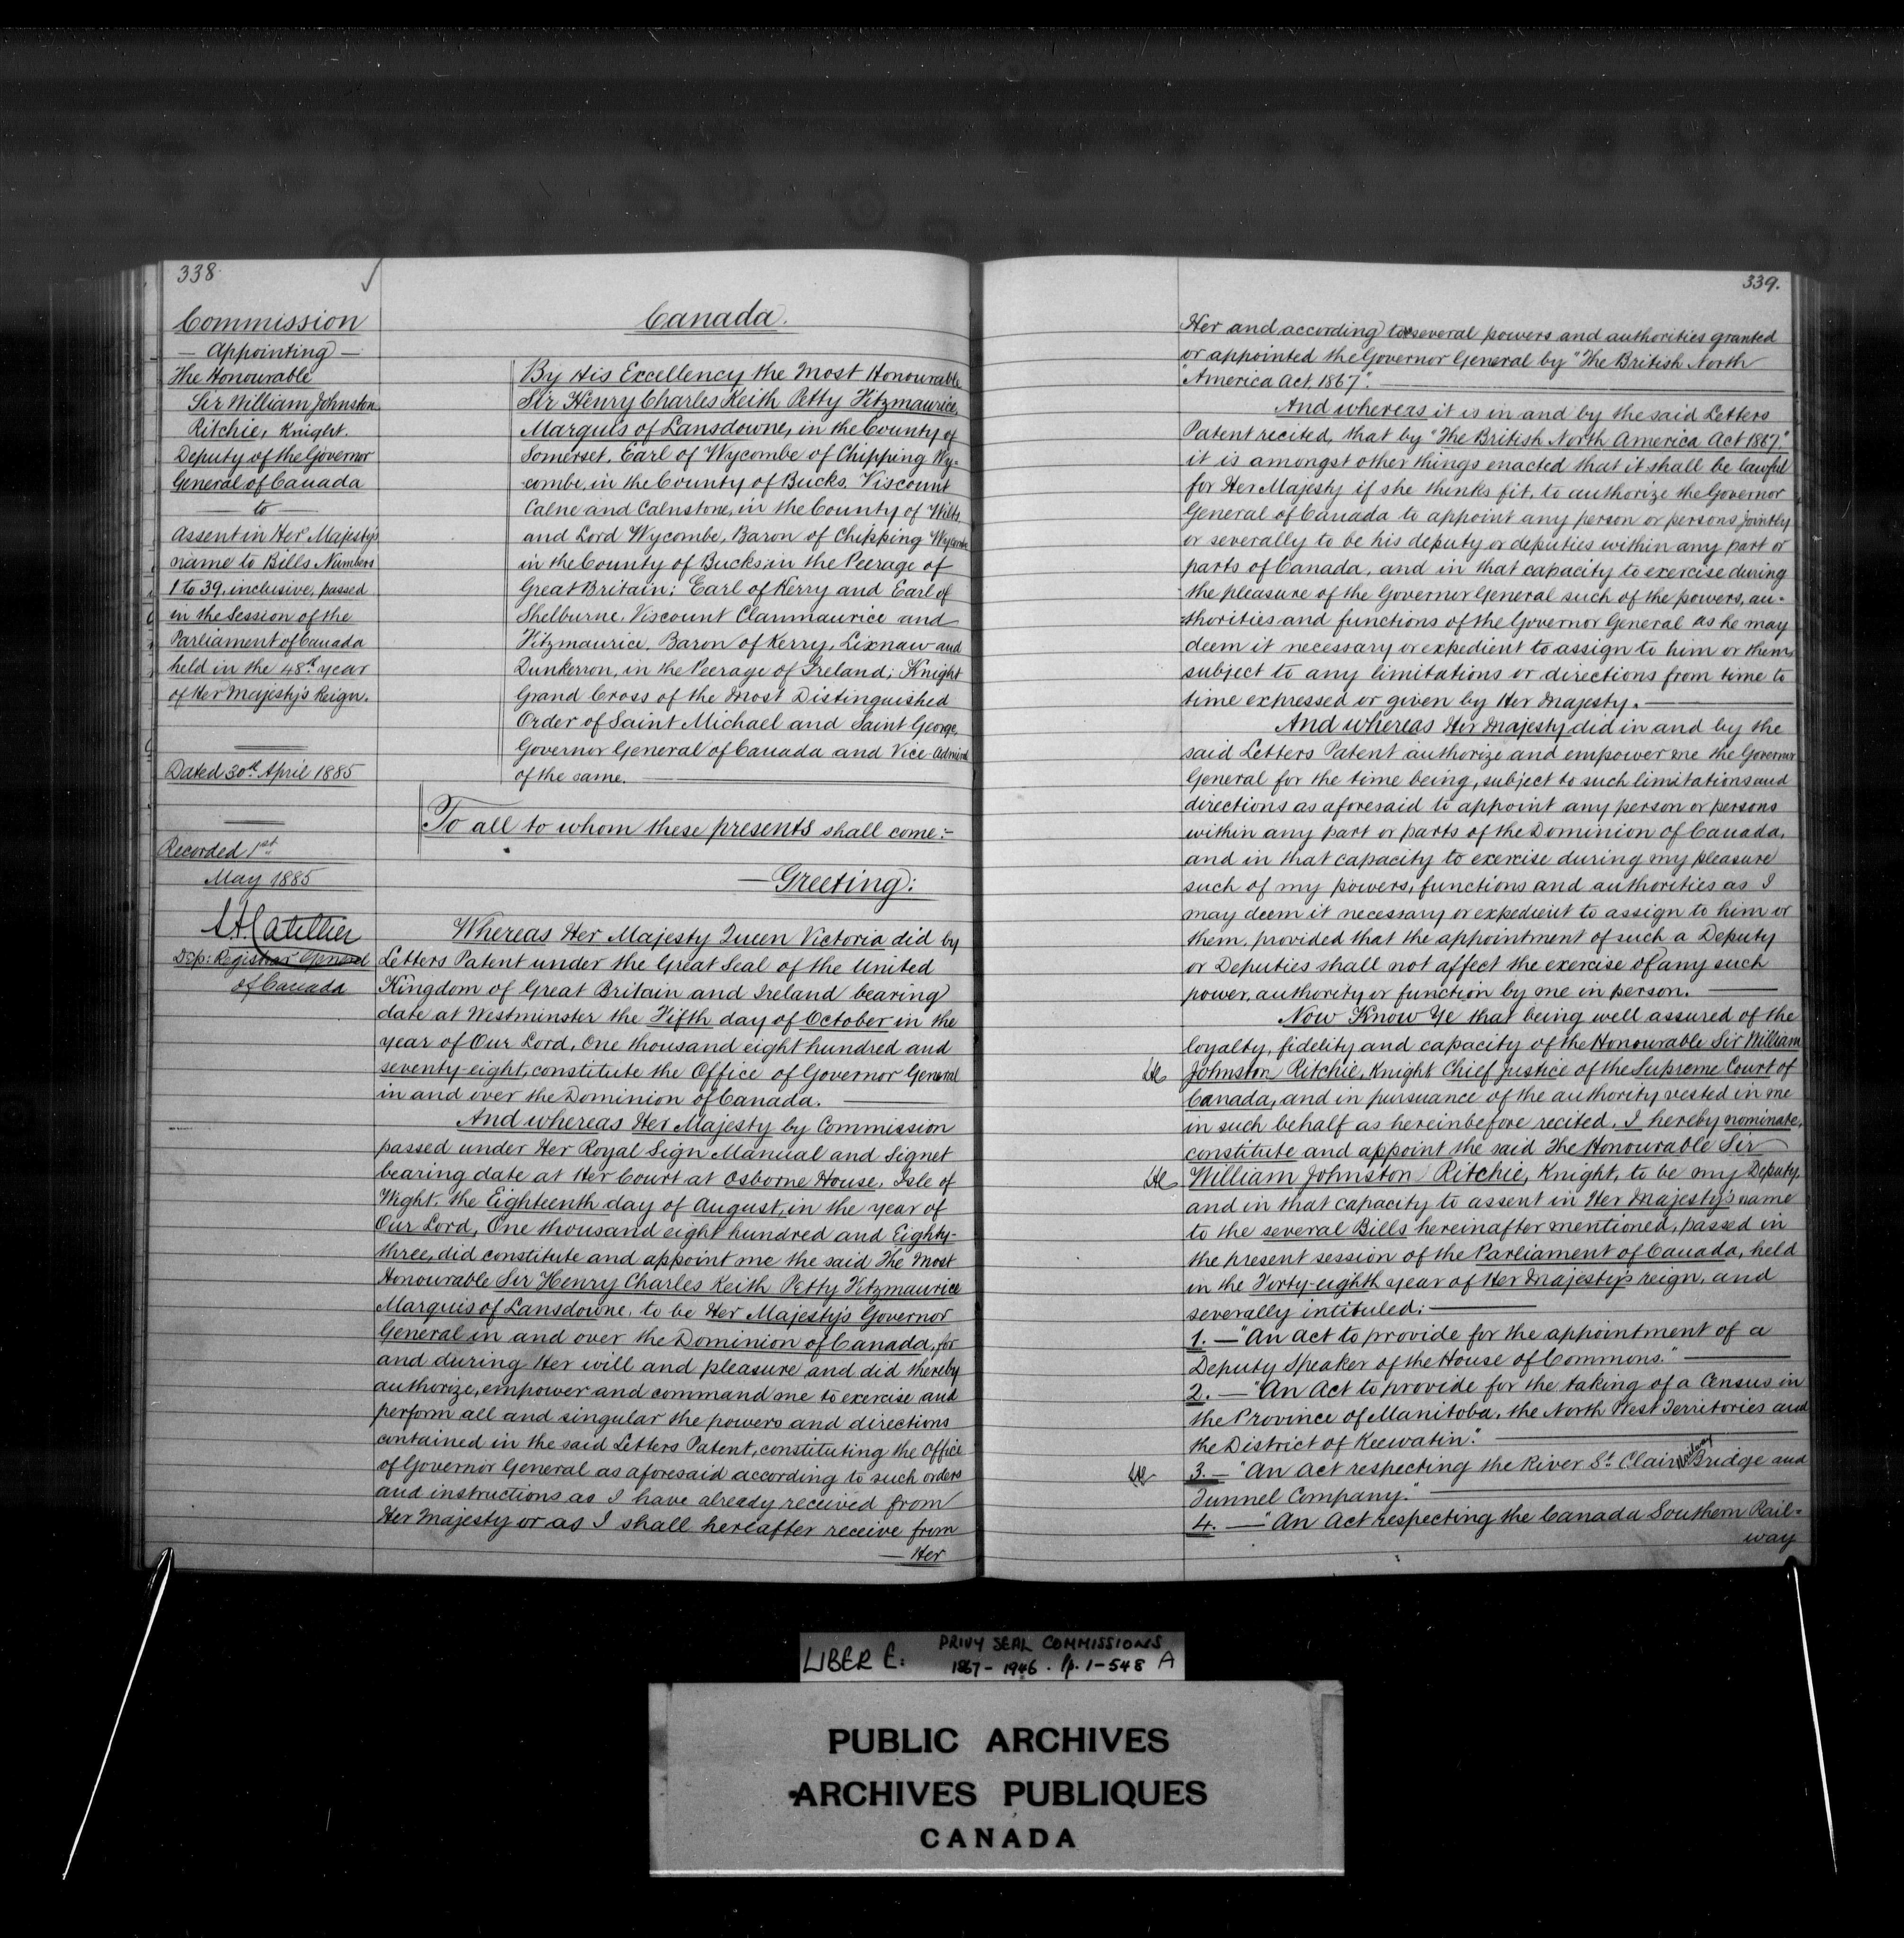 338
Commission
— Appointing —
The Honourable
Sir William Johnston
Ritchie, Knight.
Deputy of the Governor
General of Canada
— to —
Assent in Her Majesty's
name to Bills Numbers
1 to 39, inclusive, passed
in the Session of the
Parliament of Canada
held in the 48th year
of Her Majesty's Reign.
Dated 30th April 1885
Recorded 1st
May 1885
Catellier
Dep: Registrar General
of Canada
Canada.
By His Excellency the Most Honourable
Sir Henry Charles Keith Petty Fitzmaurice,
Marquis of Lansdowne, in the County of
Somerset, Earl of Wycombe of Chipping Wy-
combe, in the County of Bucks, Viscount
Calne and Calnstone, in the County of Wilts,
and Lord Wycombe, Baron of Chipping Wycombe
in the County of Bucks in the Peerage of
Great Britain; Earl of Kerry and Earl of
Shelburne, Viscount Clanmaurice and
Fitzmaurice, Baron of Kerry, Lixnaw and
Dunkerron, in the Peerage of Ireland; Knight
Grand Cross of the Most Distinguished
Order of Saint Michael and Saint George,
Governor General of Canada and Vice Admiral
of the same.
To all to whom these presents shall come:-
— Greeting:
Whereas Her Majesty Queen Victoria did by
Letters Patent under the Great Seal of the United
Kingdom of Great Britain and Ireland bearing
date at Westminster the Fifth day of October in the
year of Our Lord, One thousand eight hundred and
seventy-eight, constitute the Office of Governor General
in and over the Dominion of Canada.
And whereas Her Majesty by Commission
passed under Her Royal Sign Manual and Signet
bearing date at Her Court at Osborne House, Isle of
Wight, the Eighteenth day of August, in the year of
Our Lord, One thousand eight hundred and Eighty-
three, did constitute and appoint me the said The Most
Honourable Sir Henry Charles Keith Petty Fitzmaurice
Marquis of Lansdowne, to be Her Majesty's Governor
General in and over the Dominion of Canada, for
and during Her will and pleasure and did thereby
authorize, empower and command me to exercise and
perform all and singular the powers and directions
contained in the said Letters Patent, constituting the Office
of Governor General as aforesaid according to such orders
and instructions as I have already received from
Her Majesty or as I shall hereafter receive from
— Her
339.
Her and according to several powers and authorities granted
or appointed the Governor General by "The British North
"America Act, 1867".
And whereas it is in and by the said Letters
Patent recited, that by "The British North America Act 1867,"
it is amongst other things enacted that it shall be lawful
for Her Majesty if she thinks fit, to authorize the Governor
General of Canada to appoint any person or persons jointly
or severally to be his deputy or deputies within any part or
parts of Canada, and in that capacity to exercise during
the pleasure of the Governor General such of the powers, au-
thorities and functions of the Governor General as he may
deem it necessary or expedient to assign to him or them
subject to any limitations or directions from time to
time expressed or given by Her Majesty.
And whereas Her Majesty did in and by the
said Letters Patent authorize and empower me the Governor
General for the time being, subject to such limitations and
directions as aforesaid to appoint any person or persons
within any part or parts of the Dominion of Canada,
and in that capacity to exercise during my pleasure
such of my powers, functions and authorities as I
may deem it necessary or expedient to assign to him or
them, provided that the appointment of such a Deputy
or Deputies shall not affect the exercise of any such
power, authority or function by me in person.
Now Know Ye that being well assured of the
loyalty, fidelity and capacity of the Honourable Sir William
Johnston Ritchie, Knight Chief Justice of the Supreme Court of
Canada, and in pursuance of the authority vested in me
in such behalf as hereinbefore recited, I hereby nominate,
constitute and appoint the said The Honourable Sir
William Johnston Ritchie, Knight, to be my Deputy,
and in that capacity to assent in Her Majesty's name
to the several Bills hereinafter mentioned, passed in
the present session of the Parliament of Canada, held
in the Forty-eighth year of Her Majesty's reign, and
severally intituled:
1. — "An Act to provide for the appointment of a
Deputy Speaker of the House of Commons."
2. — "An Act to provide for the taking of a Census in
the Province of Manitoba, the North West Territories and
the District of Keewatin."
3. — "An Act respecting the River St. Clair Railway Bridge and
Tunnel Company."
4. — "An Act respecting the Canada Southern Rail-
way
LIBER E:
PRIVY SEAL COMMISSIONS
1867 - 1946. Pp. 1-548 A
PUBLIC ARCHIVES
ARCHIVES PUBLIQUES
CANADA